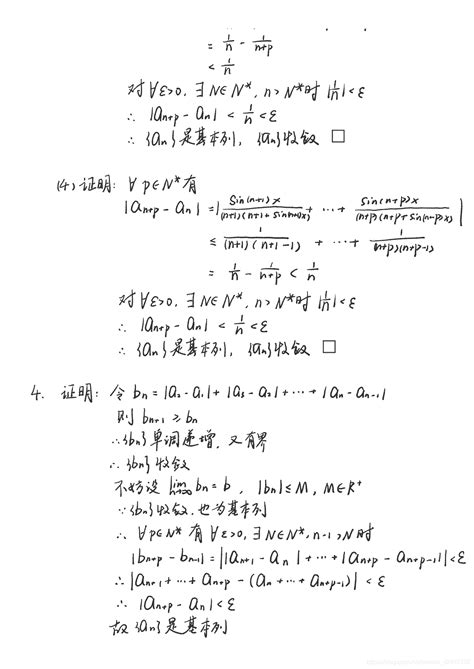 = 1/n - 1/(n+p)
< 1/n
对∀ε>0, ∃N∈N*, n>N*时 |1/n|<ε
∴ |aₙ₊ₚ - aₙ| < 1/n < ε
∴ {aₙ}是基本列, {aₙ}收敛 □
(4) 证明: ∀p∈N*有
|aₙ₊ₚ - aₙ| = |sin(n+1)x/((n+1)(n+1+sin(n+1)x)) + ⋯ + sin(n+p)x/((n+p)(n+p+sin(n+p)x))|
≤ 1/((n+1)(n+1-1)) + ⋯ + 1/((n+p)(n+p-1))
= 1/n - 1/(n+p) < 1/n
对∀ε>0, ∃N∈N*, n>N*时 |1/n|<ε
∴ |aₙ₊ₚ - aₙ| < 1/n < ε
∴ {aₙ}是基本列, {aₙ}收敛 □
4. 证明: 令 bₙ = |a₂ - a₁| + |a₃ - a₂| + ⋯ + |aₙ - aₙ₋₁|
则 bₙ₊₁ ≥ bₙ
∴{bₙ}单调递增, 又有界
∴ {bₙ}收敛
不妨设 lim n→∞ bₙ = b, |bₙ| ≤ M, M∈R⁺
∵{bₙ}收敛, 也为基本列
∴ ∀p∈N* 有∀ε>0, ∃N∈N*, n-1>N时
|bₙ₊ₚ - bₙ₋₁| = ||aₙ₊₁ - aₙ| + ⋯ + |aₙ₊ₚ - aₙ₊ₚ₋₁|| < ε
∴ |aₙ₊₁ + ⋯ + aₙ₊ₚ - (aₙ + ⋯ + aₙ₊ₚ₋₁)| < ε
∴ |aₙ₊ₚ - aₙ| < ε
故{aₙ}是基本列